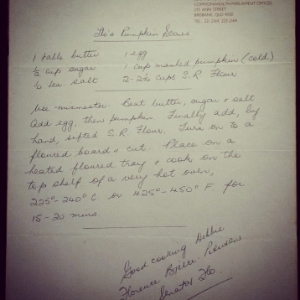 COMMONWEALTH PARLIAMENT OFFICES
BRISBANE QLD 4000
Flo's Pumpkin Scones
1 tbls butter 1 egg
½ cup sugar 1 cup mashed pumpkin (cold)
½ tea salt 2-2½ cups S.R Flour
Use mixmaster. Beat butter, sugar & salt
Add egg, then pumpkin. Finally add, by
hand, sifted S.R Flour. Turn on to a
floured board & cut. Place on a
heated floured tray & cook on the
top shelf of a very hot oven,
225°-240° C or 425°-450° F. for
15-20 mins
Good cooking
Florence Bjelke Petersen
Senator Flo.